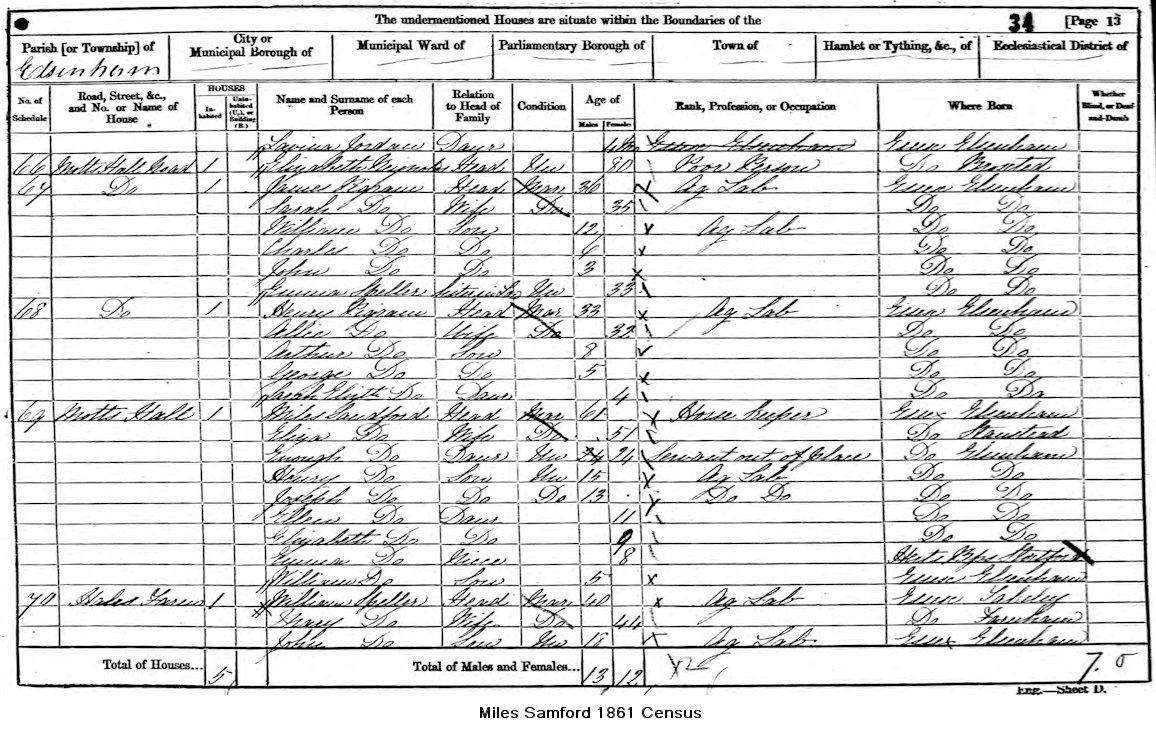 The undermentioned Houses are situate within the Boundaries of the 34 [Page 13
Parish [or Township] of City or Municipal Borough of Municipal Ward of Parliamentary Borough of Town of Hamlet or Tything, &c., of Ecclesiastical District of
Elsenham
No. of Schedule Road, Street, &c., and No. or Name of House HOUSES Inhabited Uninhabited (U.), or Building (B.) Name and Surname of each Person Relation to Head of Family Condition Age of Males Females Rank, Profession, or Occupation Where Born Whether Blind, or Deaf-and-Dumb
Lavinia Jordan Daur Essex Elsenham
66 Motts Hall Road 1 Elizabeth Head Un 80 Poor Person Do
67 Do 1 James Pigram Head Mar 36 Ag Lab Essex Elsenham
Sarah Do Wife Do 35 Do Do
William Do Son 12 Ag Lab Do Do
Charles Do Do 6 Do Do
John Do Do 3 Do Do
Emma Speller Sister in Law Un 33 Do Do
68 Do 1 Henry Pigram Head Mar 33 Ag Lab Essex Elsenham
Do Wife Do 32 Do Do
Arthur Do Son 8 Do Do
George Do Do 5 Do Do
Sarah Elizth Do Daur 4 Do Do
69 Motts Hall 1 Miles Sandford Head Mar 61 Horse Keeper Essex Elsenham
Eliza Do Wife Do 51 Do Stanstead
Do Daur Un 24 24 Servant out of Place Do Elsenham
Henry Do Son Un 15 Ag Lab Do Do
Joseph Do Do Do 13 Do Do Do Do
Ellen Do Daur 11 Do Do
Elizabeth Do Do 9 Do Do
Emma Do Niece 8 Herts Bps Stortford
William Do Son 5 Essex Elsenham
70 Farm 1 William Speller Head Mar 40 Ag Lab Essex Takeley
Mary Do Wife Do 44 Do Farnham
John Do Son Un 18 Ag Lab Essex Elsenham
Total of Houses... 5 Total of Males and Females... 13 12
Eng.—Sheet D.
Miles Samford 1861 Census